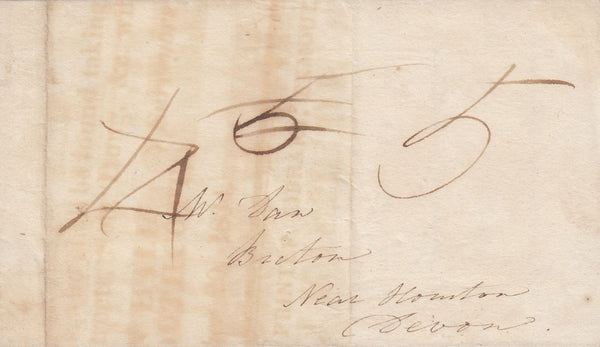 4 5 5
Mr. Dan
Bruton
Near Honiton
Devon.